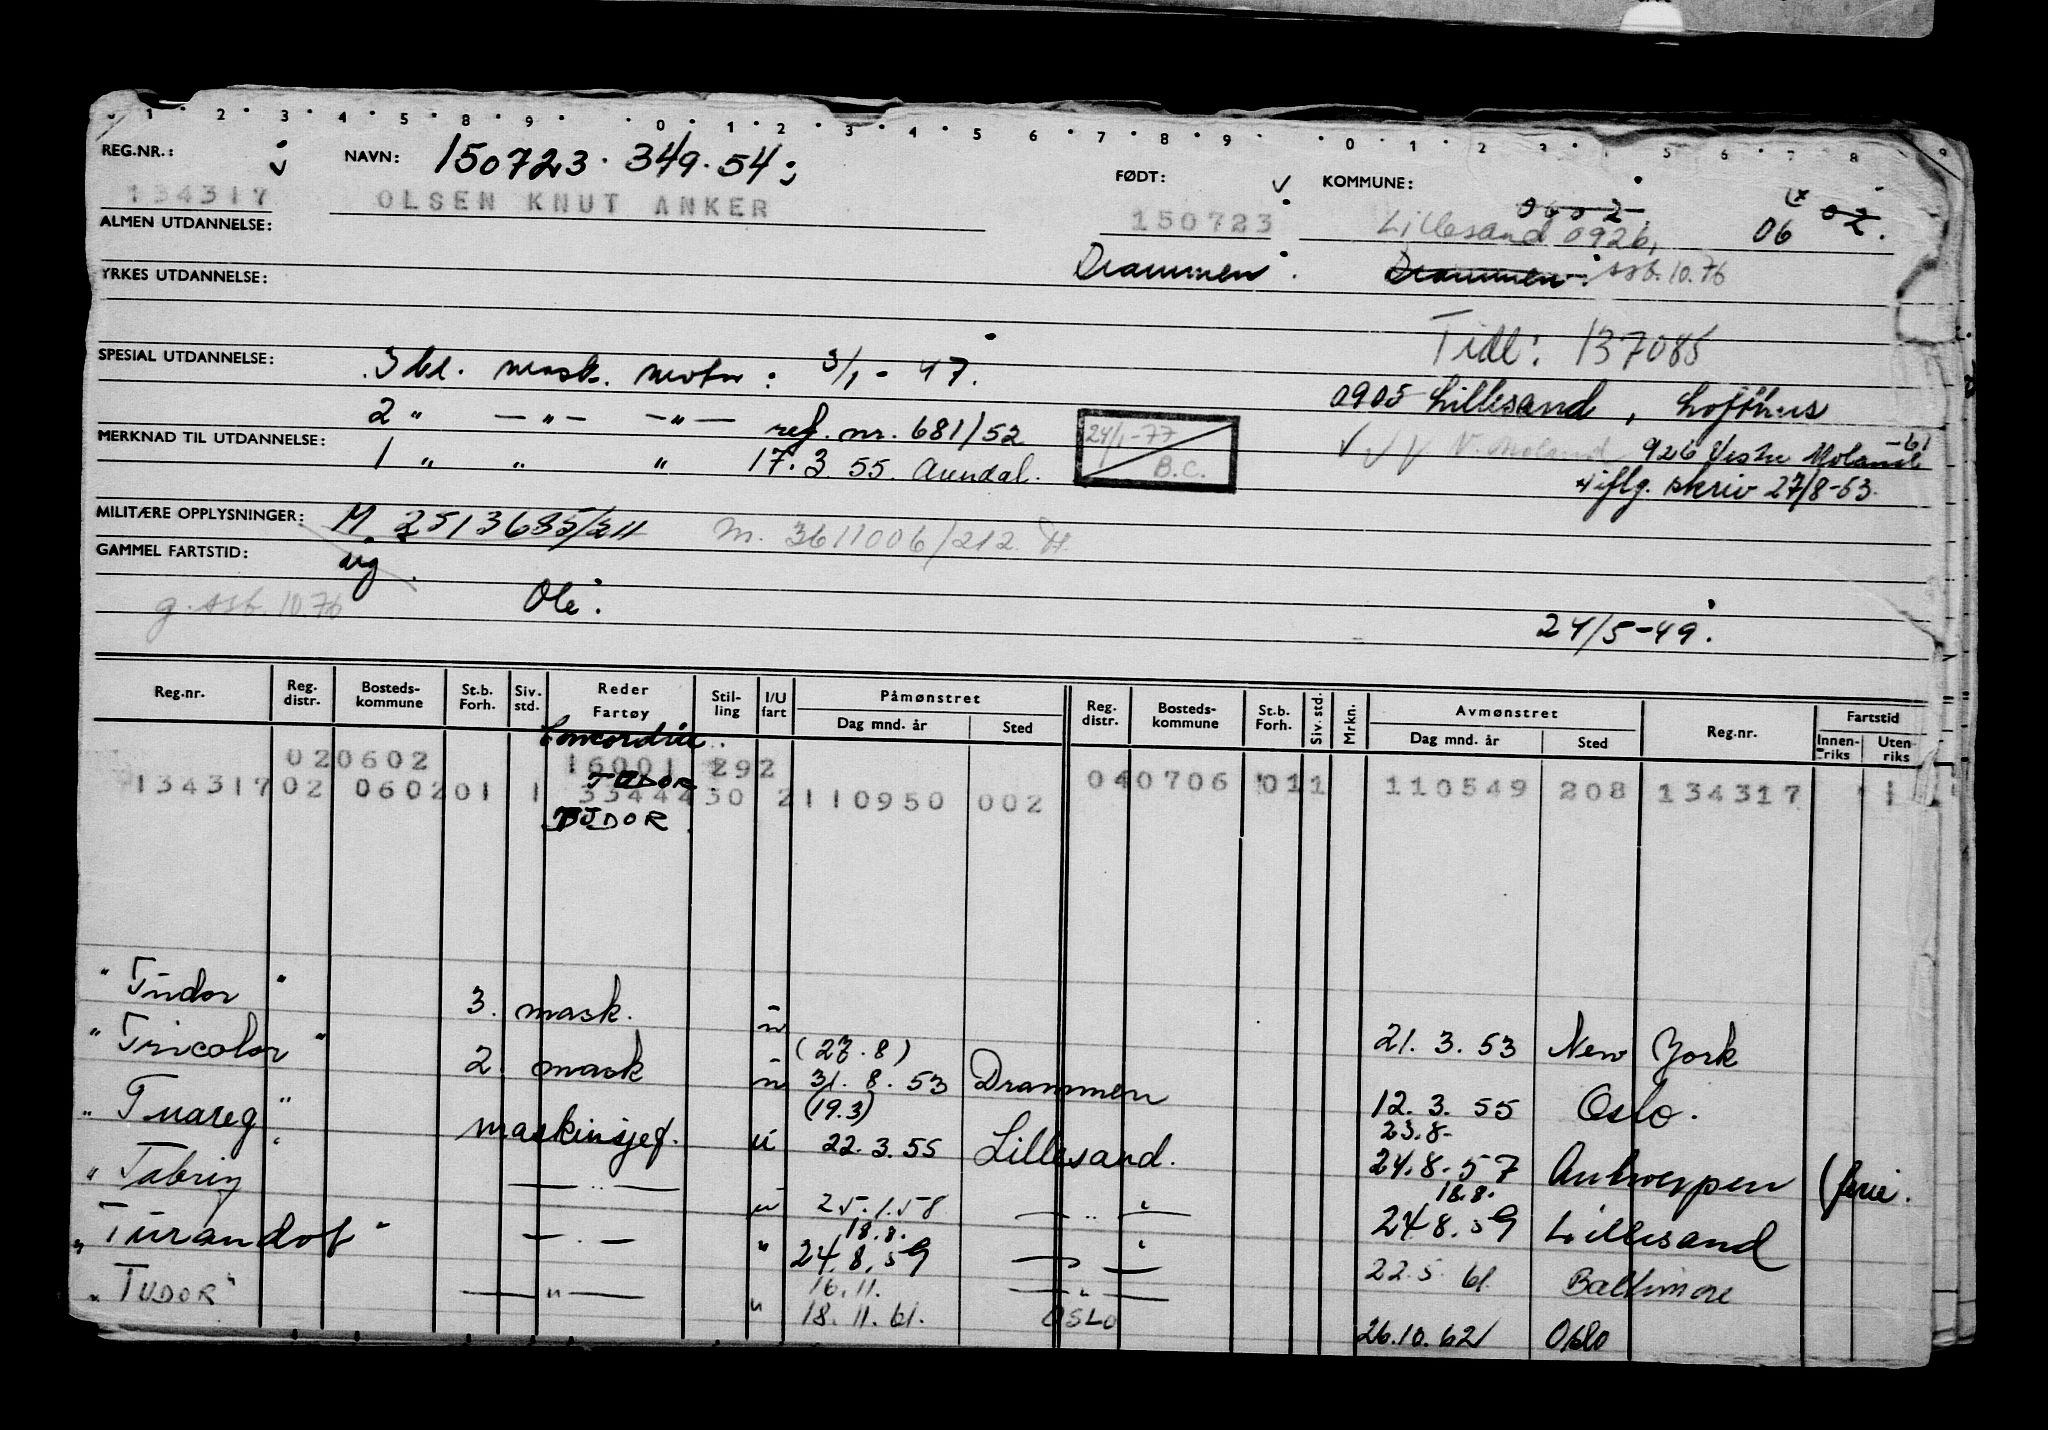 1 2 3 4 5 8 9 0 1 2 3 4 5 6 7 8 9 0 1 2 3 5 6 7 8 9
REG.NR.: NAVN: 150723. 349.54 FØDT: KOMMUNE:
134317 OLSEN KNUT ANKER 150723 Lillesand 0926, 0602 06 02.
ALMEN UTDANNELSE: Drammen. Drammen. 10.76
YRKES UTDANNELSE:
Tidl: 137085
SPESIAL UTDANNELSE: 3 kl. mask. motor: 3/1-47.
0905 Lillesand,
2 " — " — — " — ref. nr. 681/52 24/1-77
MERKNAD TIL UTDANNELSE: V. Moland 926 Vestre Moland -61
1 " " " 17.3 55. Arendal. B.C.
iflg. skriv 27/8-53.
MILITÆRE OPPLYSNINGER: M 2513685/211 M. 3611006/212 H
GAMMEL FARTSTID: ug.
10.76 Ole.
24/5-49.
Reg.nr. Reg. distr. Bosteds-kommune St.b. Forh. Siv. std. Reder Fartøy Stil-ling I/U fart Påmønstret Dag mnd. år Sted Reg. distr. Bosteds-kommune St.b. Forh. Siv. std. Mrkn. Avmønstret Dag mnd. år Sted Reg.nr. Fartstid Innen-riks Uten-riks
Concordia.
020602 16001 292 040706 011 110549 208 134317 1
TUDOR
134317 02 0602 01 1 33444 30 2 110950 002
TUDOR
"Tudor" 3. mask. u 21. 3. 53 New York
"Tricolor" 2. mask u (27.8) 31. 8. 53 Drammen 12. 3. 55 Oslo.
"Tuareg" maskinsjef. u (19.3) 22.3.55 Lillesand. 23.8- 24.8.57 Antwerpen (ferie.
"Tabriz — " — u 25.1.58 — " — 18.8. 24 8.59 Lillesand
"Turandot" — " — " 18.8. 24.8.59 — " — 22.5. 61. Baltimore
"TUDOR" — " — " 16.11. 18. 11. 61. OSLO 26.10.62 Oslo